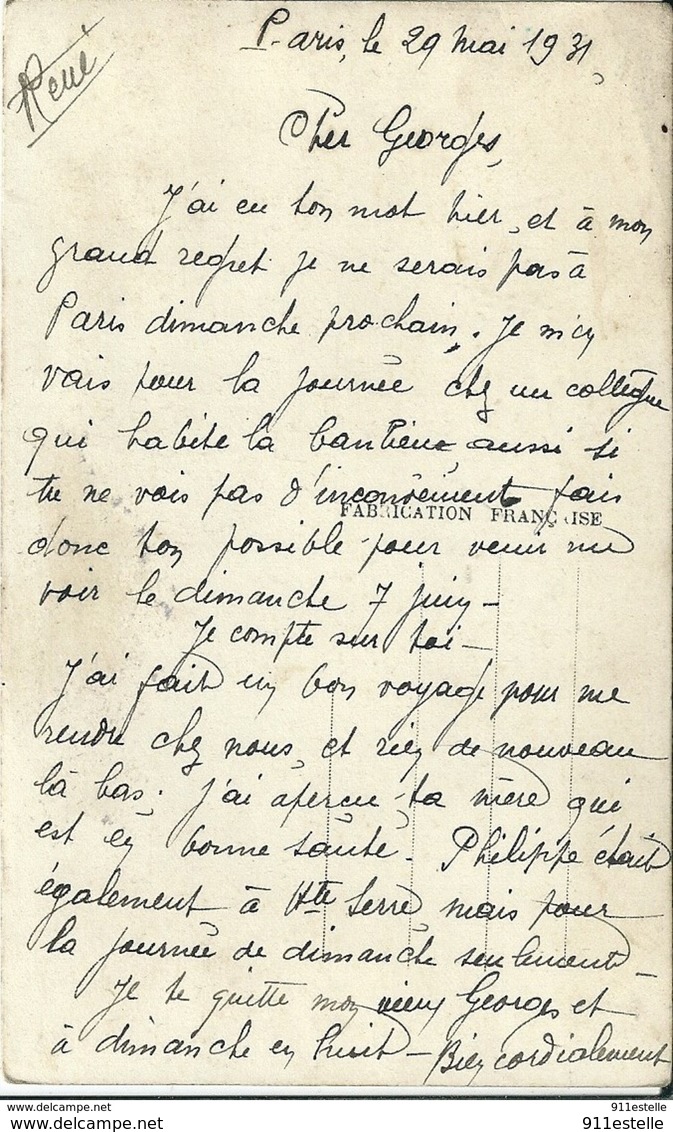 Paris, le 29 mai 1931
René
Cher Georges,
J'ai eu ton mot hier, et à mon
grand regret je ne serais pas à
Paris dimanche prochain. Je m'en
vais pour la journée chez un collègue
qui habite la banlieue, aussi si
tu ne vois pas d'inconvénient fais
FABRICATION FRANÇAISE
donc ton possible pour venir me
voir le dimanche 7 juin -
Je compte sur toi -
J'ai fait un bon voyage pour me
rendre chez nous, et rien de nouveau
là bas. J'ai aperçu ta mère qui
est en bonne santé. Philippe était
également à Hte Serre, mais pour
la journée de dimanche seulement -
Je te quitte mon vieux Georges et
à dimanche en huit - Bien cordialement
911estelle
911estelle
911estelle
911estelle